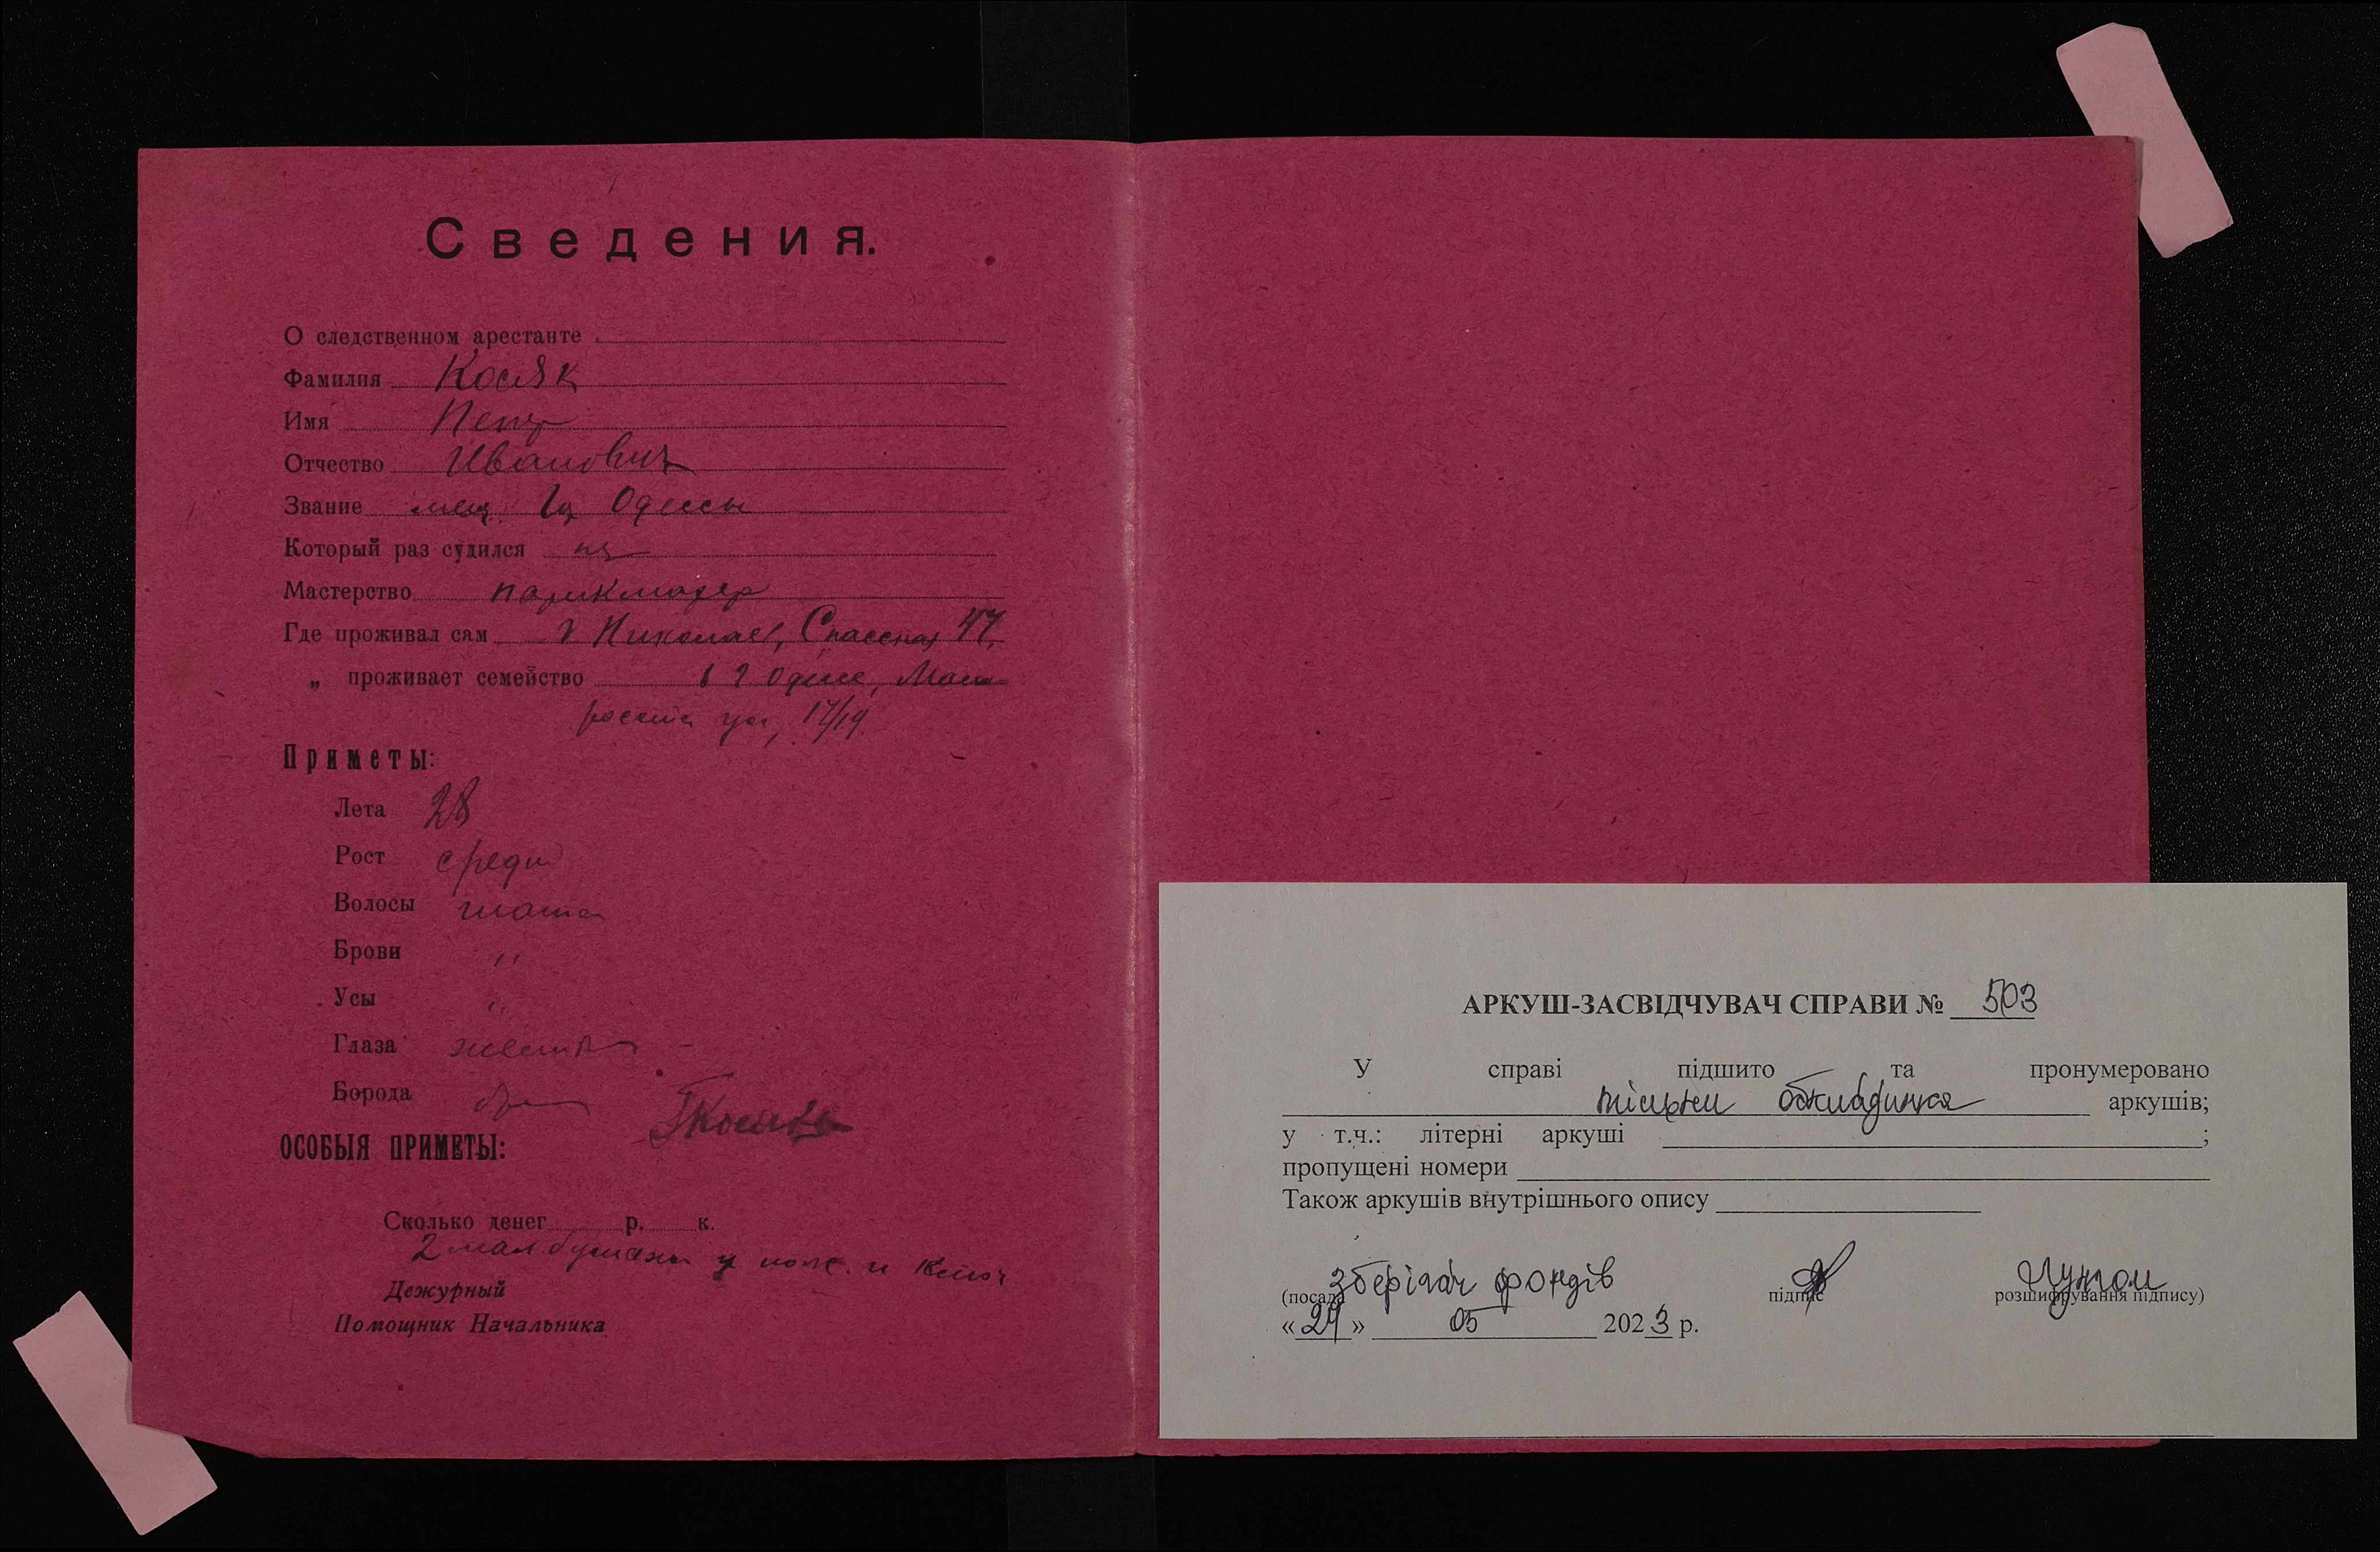 Сведения.
О следственном арестанте
Фамилия Косяк
Имя Петр
Отчество Иванович
Звание мещ. гор Одессы
Который раз судился
Мастерство парикмахер
Где проживал сам г Николаев, Спасская 47,
„ проживает семейство в г Одессе, Мало
россий ул, 17/19
Приметы:
Лета 28
Рост средн
Волосы
Брови ,,
Усы ,,
Глаза
Борода
ОСОБЫЯ ПРИМЕТЫ:
Сколько денег р. к.
2 мал. бумажн и ключ
Дежурный
Помощник Начальника
АРКУШ-ЗАСВІДЧУВАЧ СПРАВИ № 503
У справі підшито та пронумеровано
тільки обкладинка аркушів;
у т.ч.: літерні аркуші ;
пропущені номери
Також аркушів внутрішнього опису
зберігач фондів
(посада підпис розшифрування підпису)
«24» 05 2023 р.